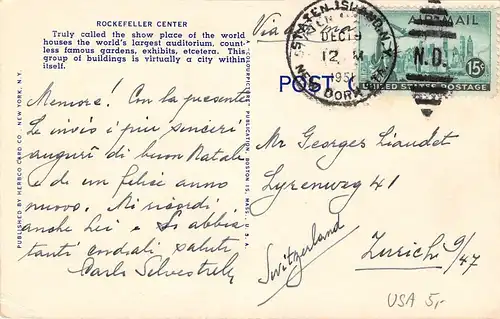 ROCKEFELLER CENTER
Truly called the show place of the world
houses the world's largest auditorium, count-
less famous gardens, exhibits, etcetera. This
group of buildings is virtually a city within
itself.
Memore! Con la presente
Le invio i piu sinceri
auguri di buon Natale
e di un felice anno
nuovo. Mi ricordi
anche Lei e Si abbia
tanti cordiali saluti
Carlo Silvestrelli
PUBLISHED BY HERBCO CARD CO., NEW YORK, N.Y.
A "COLOURPICTURE" PUBLICATION, BOSTON 15, MASS., U.S.A.
Via
POST
STATEN ISLAND, N.Y.
DEC 19
12 M
195
NEW DORP STA.
AIR MAIL
N.D.
15¢
UNITED STATES POSTAGE
Mr Georges Liaudet
Lyrenweg 41
Zurich 9/47
Switzerland
USA 5,-